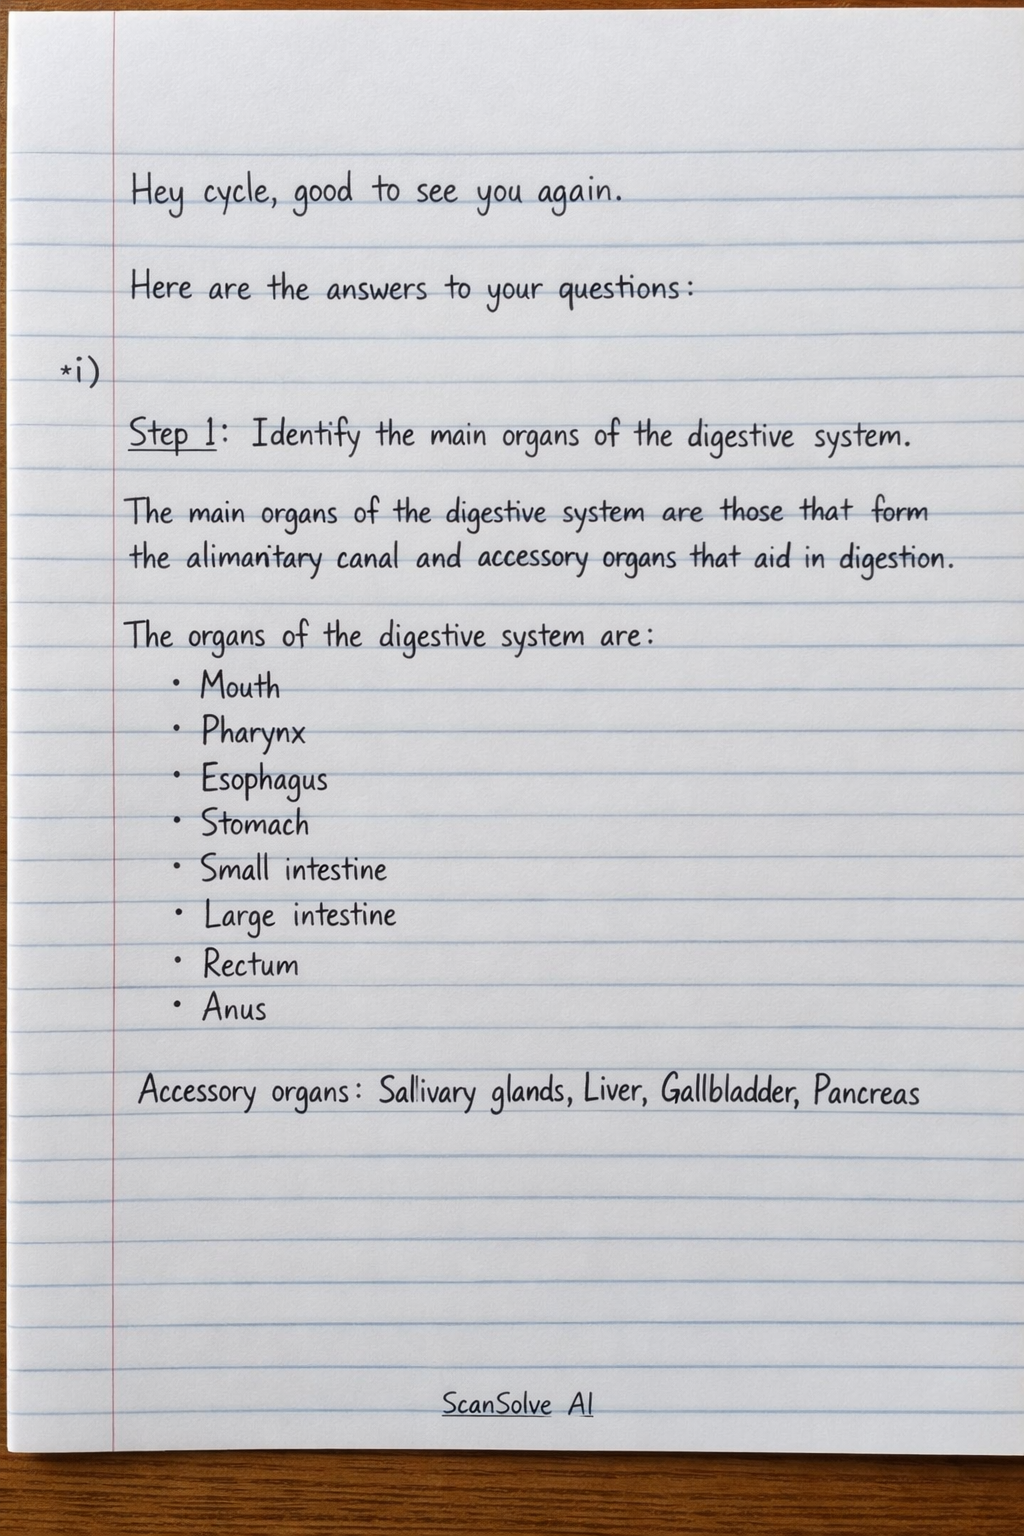 Hey cycle, good to see you again.
Here are the answers to your questions:
*i)
Step 1: Identify the main organs of the digestive system.
The main organs of the digestive system are those that form
the alimantary canal and accessory organs that aid in digestion.
The organs of the digestive system are:
• Mouth
• Pharynx
• Esophagus
• Stomach
• Small intestine
• Large intestine
• Rectum
• Anus
Accessory organs: Sallivary glands, Liver, Gallbladder, Pancreas
ScanSolve AI